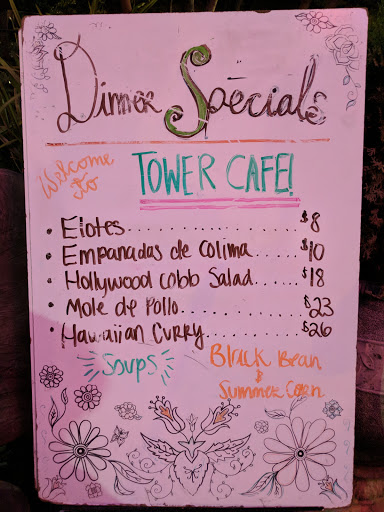 Dinner Specials
Welcome to
TOWER CAFE!
• Elotes.................$8
• Empanadas de Colima......$10
• Hollywood Cobb Salad.....$18
• Mole de Pollo............$23
• Hawaiian Curry...........$26
Soups
Black Bean
& Summer Corn